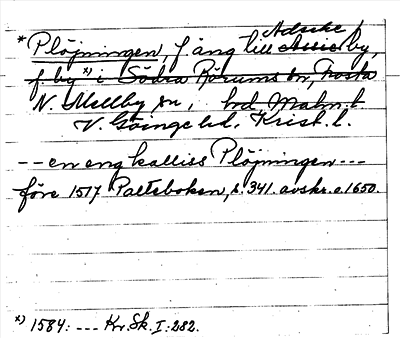 Adseke
* Plöjningen, f äng till by,
f by x) i Södra Rörums sn, Frosta
N. Mellby sn, hd, Malm. l.
V. Göinge hd. Krist. l.
-- en eng kalliss Plöjningen ---
före 1517 Palteboken, s. 341. avskr. c. 1650.
x) 1584: --- Kr. Sk. I: 282.